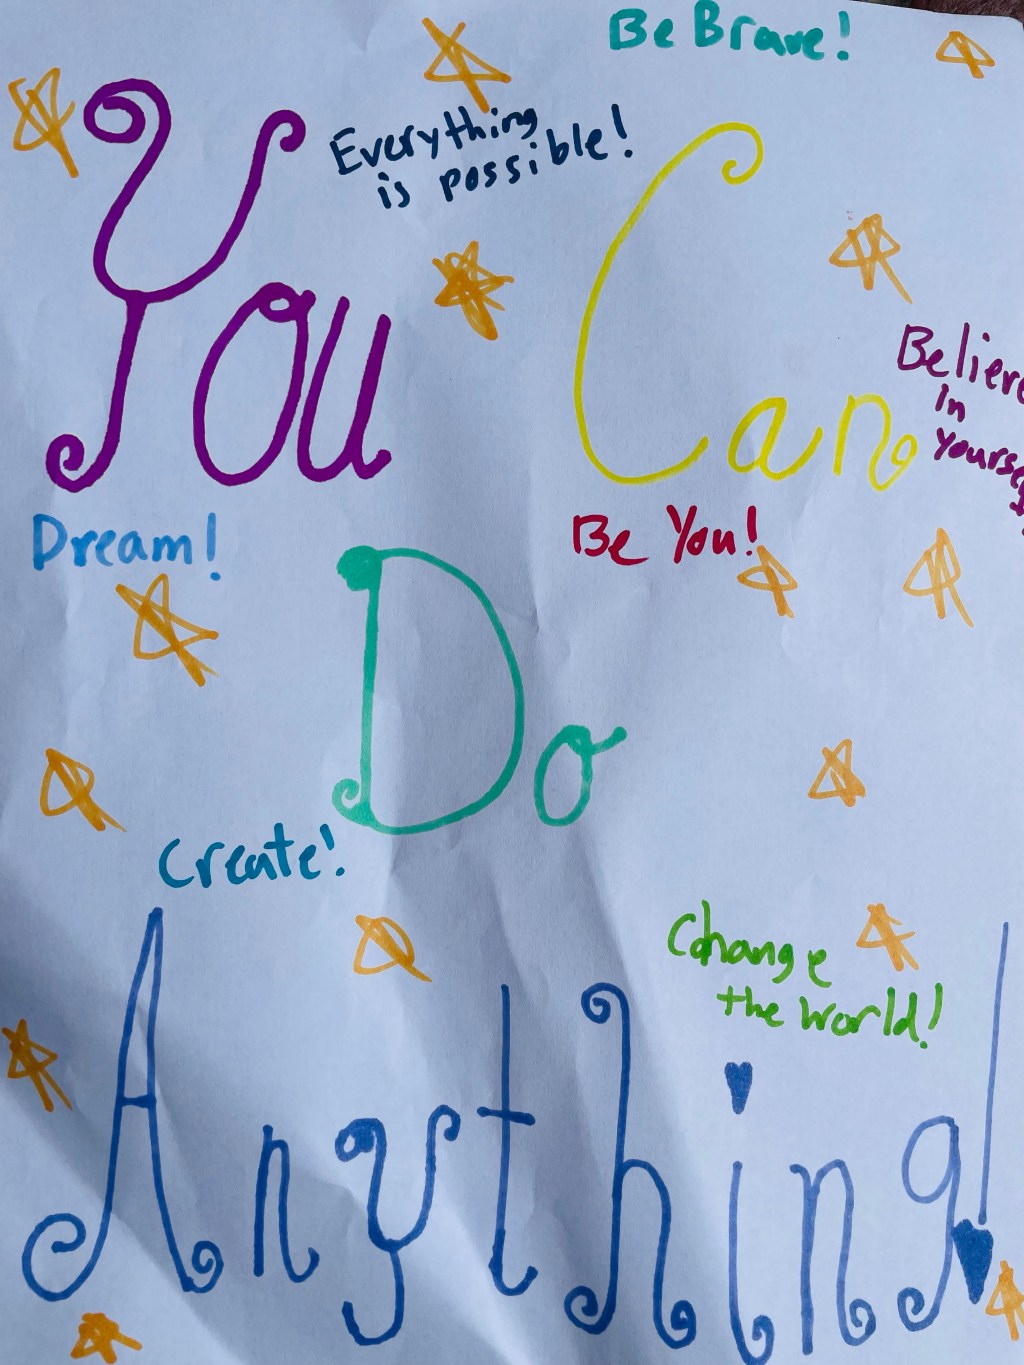 Be Brave!
Everything
is possible!
You Can
Believe
in
Yourself
Dream!
Be You!
Do
Create!
Change
the world!
Anything!